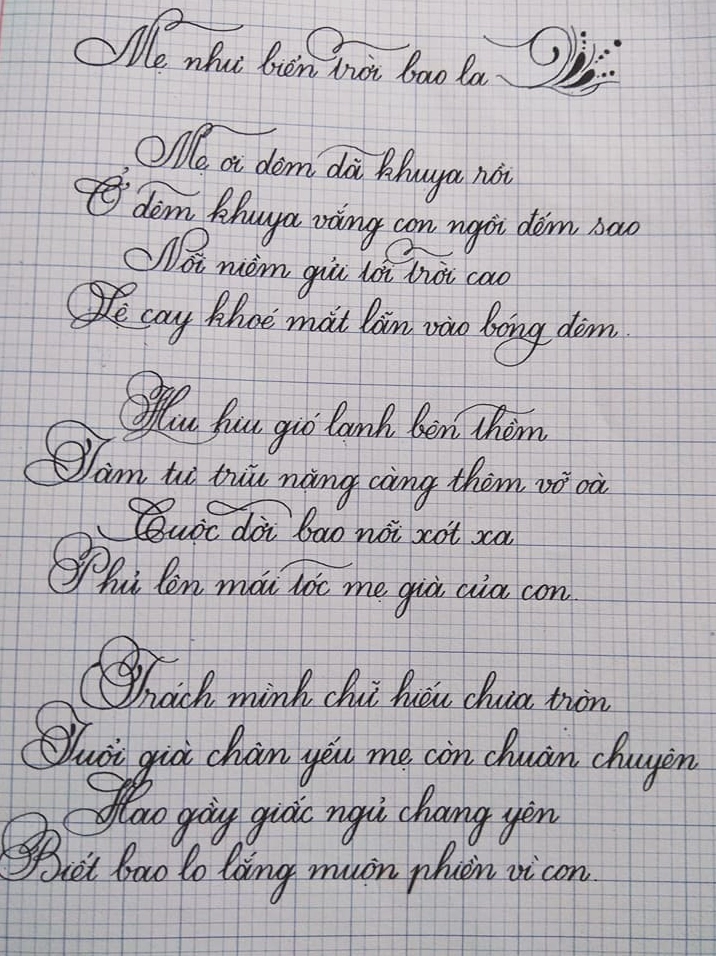 Mẹ như biển trời bao la
Mẹ ơi đêm đã khuya rồi
Ở đêm khuya vắng con ngồi đếm sao
Nỗi niềm gửi tới trời cao
Lệ cay khoé mắt lẫn vào bóng đêm.
Hiu hiu gió lạnh bên thềm
Tâm tư trĩu nặng càng thêm vỡ oà
Cuộc đời bao nỗi xót xa
Phủ lên mái tóc mẹ già của con.
Trách mình chữ hiếu chưa tròn
Tuổi già chân yếu mẹ còn chuân chuyên
Hao gầy giấc ngủ chang yên
Biết bao lo lắng muộn phiền vì con.